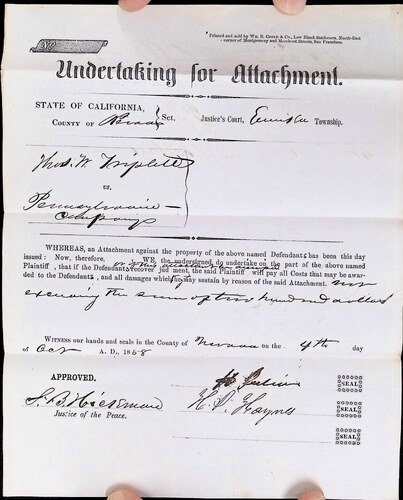 No
Printed and sold by Wm. B. Cooke & Co., Law Blank Stationers, North-East
corner of Montgomery and Merchant Streets, San Francisco.
Undertaking for Attachment.
STATE OF CALIFORNIA,
COUNTY OF Nevada } Sct.
Justice's Court, Township.
Thos. W. Triplett
vs.
Pennsylvania
Company
WHEREAS, an Attachment against the property of the above named Defendants has been this day
issued: Now, therefore, WE, the undersigned, do undertake on the part of the above named
Plaintiff, that if the Defendants recover judgment, the said Plaintiff will pay all Costs that may be awar-
ded to the Defendants, and all damages which they may sustain by reason of the said Attachment. not
exceeding the sum of two hundred dollars
WITNESS our hands and seals in the County of Nevada on the 4th day
of Oct A. D., 1858
APPROVED.
S. B. Hickmore
Justice of the Peace.
H. S. Haynes
SEAL
SEAL
SEAL